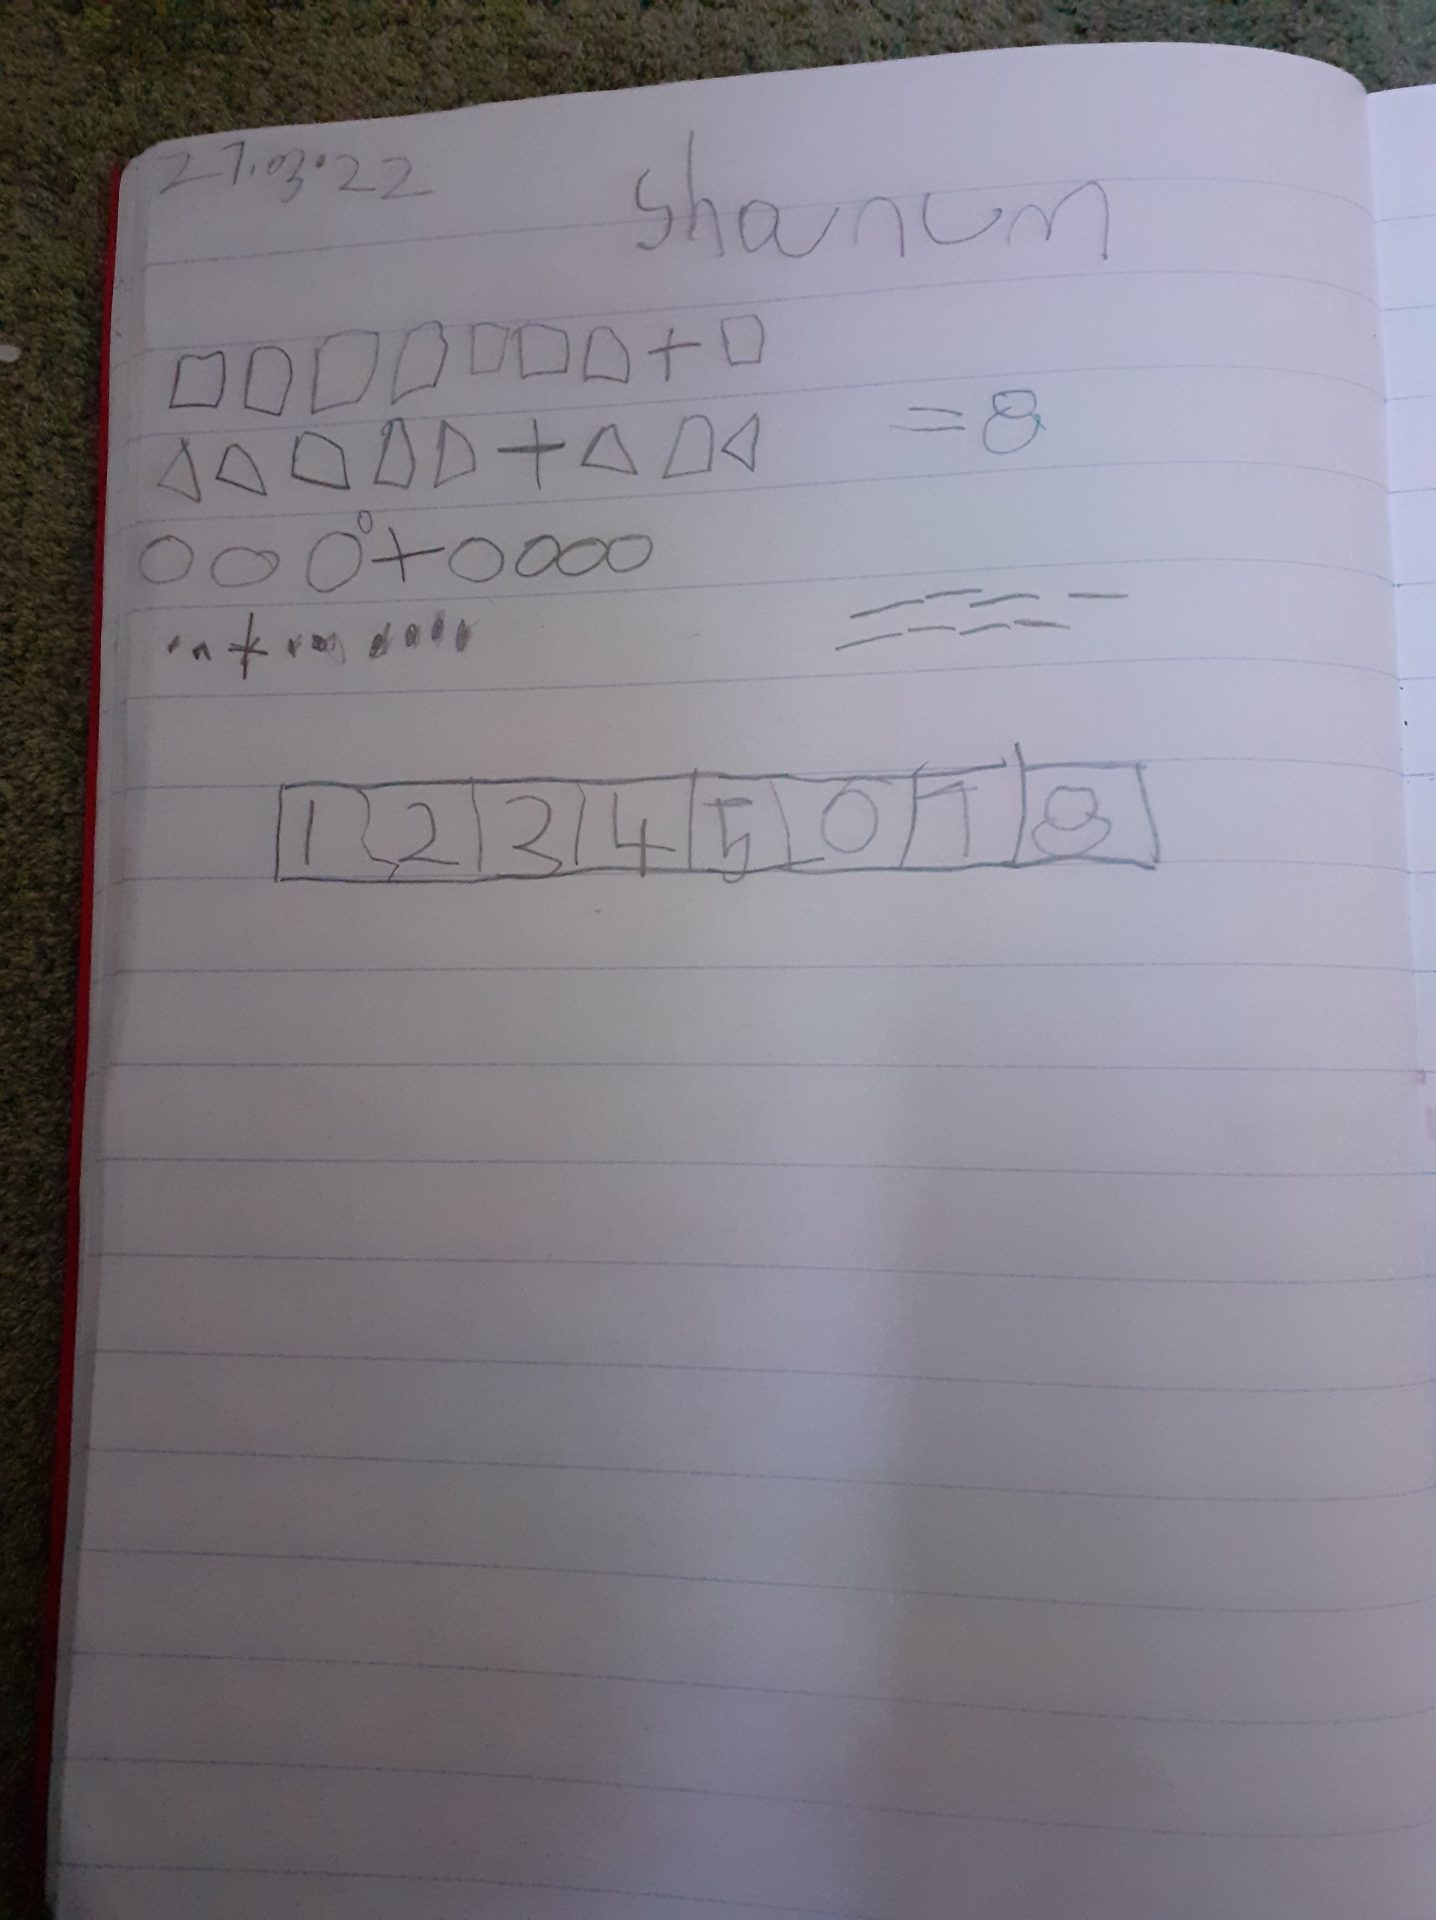 27.03.22
Shanum
+
+ = 8
+
+
1 2 3 4 5 0 7 8